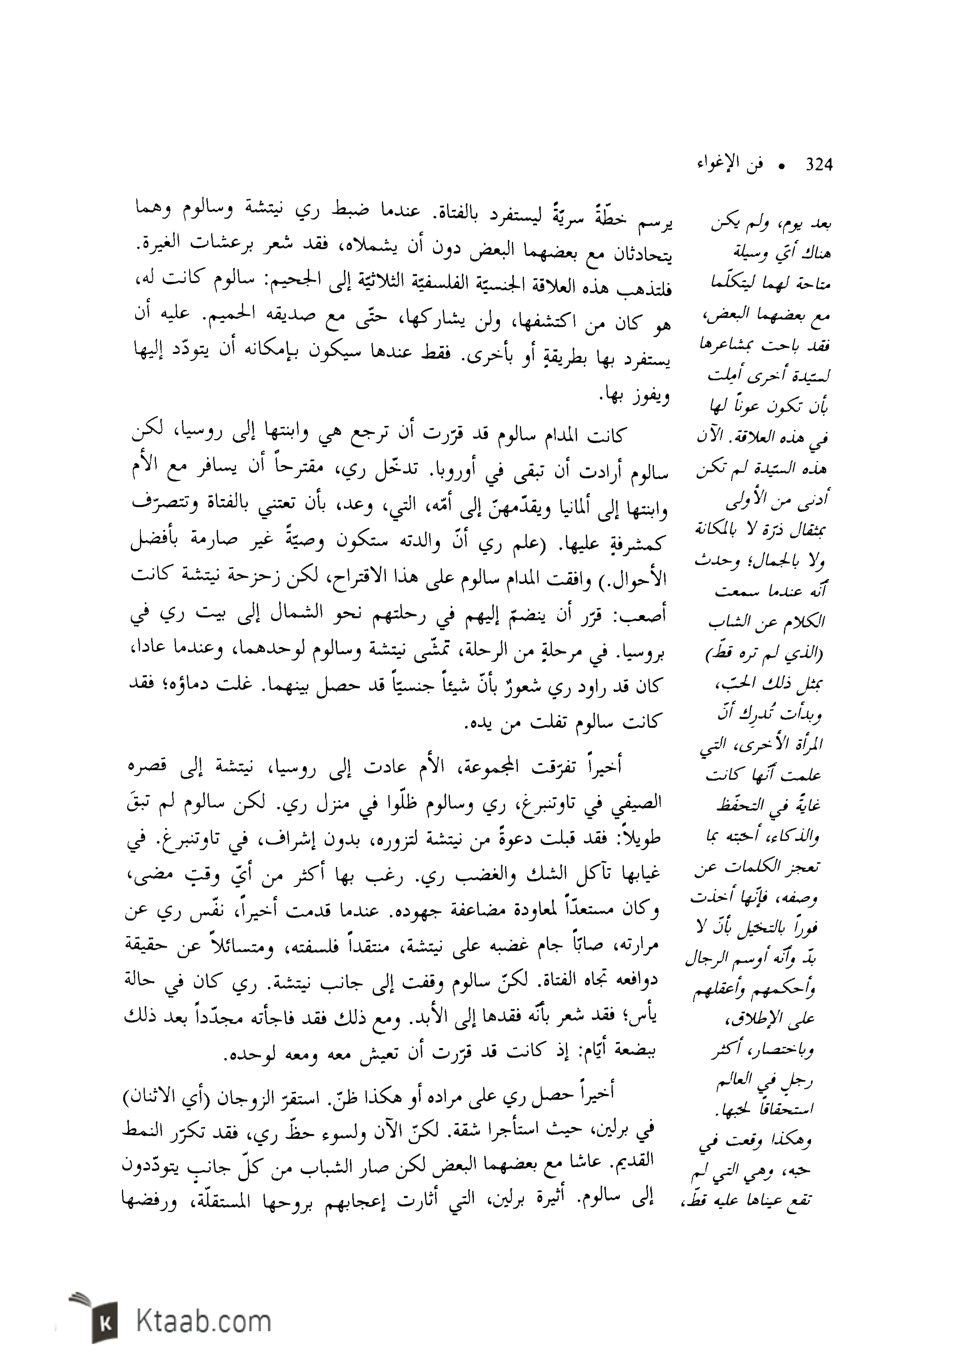 324 • فن الإغواء
يرسم خطّةً سريّةً ليستفرد بالفتاة. عندما ضبط ري نيتشة وسالوم وهما
يتحادثان مع بعضهما البعض دون أن يشملاه، فقد شعر برعشات الغيرة.
فلتذهب هذه العلاقة الجنسيّة الفلسفيّة الثلاثيّة إلى الجحيم: سالوم كانت له،
هو كان من اكتشفها، ولن يشاركها، حتّى مع صديقه الحميم. عليه أن
يستفرد بها بطريقةٍ أو بأخرى. فقط عندها سيكون بإمكانه أن يتودّد إليها
ويفوز بها.
كانت المدام سالوم قد قرّرت أن ترجع هي وابنتها إلى روسيا، لكن
سالوم أرادت أن تبقى في أوروبا. تدخّل ري، مقترحاً أن يسافر مع الأم
وابنتها إلى ألمانيا ويقدّمهنّ إلى أمّه، التي، وعد، بأن تعتني بالفتاة وتتصرّف
كمشرفةٍ عليها. (علم ري أنّ والدته ستكون وصيّةً غير صارمة بأفضل
الأحوال.) وافقت المدام سالوم على هذا الاقتراح، لكن زحزحة نيتشة كانت
أصعب: قرّر أن ينضمّ إليهم في رحلتهم نحو الشمال إلى بيت ري في
بروسيا. في مرحلةٍ من الرحلة، تمشّى نيتشة وسالوم لوحدهما، وعندما عادا،
كان قد راود ري شعورٌ بأنّ شيئاً جنسيّاً قد حصل بينهما. غلت دماؤه؛ فقد
كانت سالوم تفلت من يده.
أخيراً تفرّقت المجموعة، الأم عادت إلى روسيا، نيتشة إلى قصره
الصيفي في تاوتنبرغ، ري وسالوم ظلّوا في منزل ري. لكن سالوم لم تبقَ
طويلاً: فقد قبلت دعوةً من نيتشة لتزوره، بدون إشراف، في تاوتنبرغ. في
غيابها تآكل الشك والغضب ري. رغب بها أكثر من أيّ وقتٍ مضى،
وكان مستعدّاً لمعاودة مضاعفة جهوده. عندما قدمت أخيراً، نفّس ري عن
مرارته، صابّاً جام غضبه على نيتشة، منتقداً فلسفته، ومتسائلاً عن حقيقة
دوافعه تجاه الفتاة. لكنّ سالوم وقفت إلى جانب نيتشة. ري كان في حالة
يأس؛ فقد شعر بأنّه فقدها إلى الأبد. ومع ذلك فقد فاجأته مجدّداً بعد ذلك
ببضعة أيّام: إذ كانت قد قرّرت أن تعيش معه ومعه لوحده.
أخيراً حصل ري على مراده أو هكذا ظنّ. استقرّ الزوجان (أي الاثنان)
في برلين، حيث استأجرا شقة. لكنّ الآن ولسوء حظّ ري، فقد تكرّر النمط
القديم. عاشا مع بعضهما البعض لكن صار الشباب من كلّ جانبٍ يتودّدون
إلى سالوم. أثيرة برلين، التي أثارت إعجابهم بروحها المستقلّة، ورفضها
بعد يوم، ولم يكن
هناك أيّ وسيلة
متاحة لهما ليتكلّما
مع بعضهما البعض،
فقد باحت بمشاعرها
لسيّدة أخرى أملت
بأن تكون عوناً لها
في هذه العلاقة. الآن
هذه السيّدة لم تكن
أدنى من الأولى
بمثقال ذرّة لا بالمكانة
ولا بالجمال؛ وحدث
أنّه عندما سمعت
الكلام عن الشاب
(الذي لم تره قطّ)
بمثل ذلك الحبّ،
وبدأت تُدرِك أنّ
المرأة الأخرى، التي
علمت أنّها كانت
غايةً في التحفّظ
والذكاء، أحبته بما
تعجز الكلمات عن
وصفه، فإنّها أخذت
فوراً بالتخيّل بأنّ لا
بدّ وأنّه أوسم الرجال
وأحكمهم وأعقلهم
على الإطلاق،
وباختصار، أكثر
رجلٍ في العالم
استحقاقاً لحبها.
وهكذا وقعت في
حبه، وهي التي لم
تقع عيناها عليه قطّ،
Ktaab.com